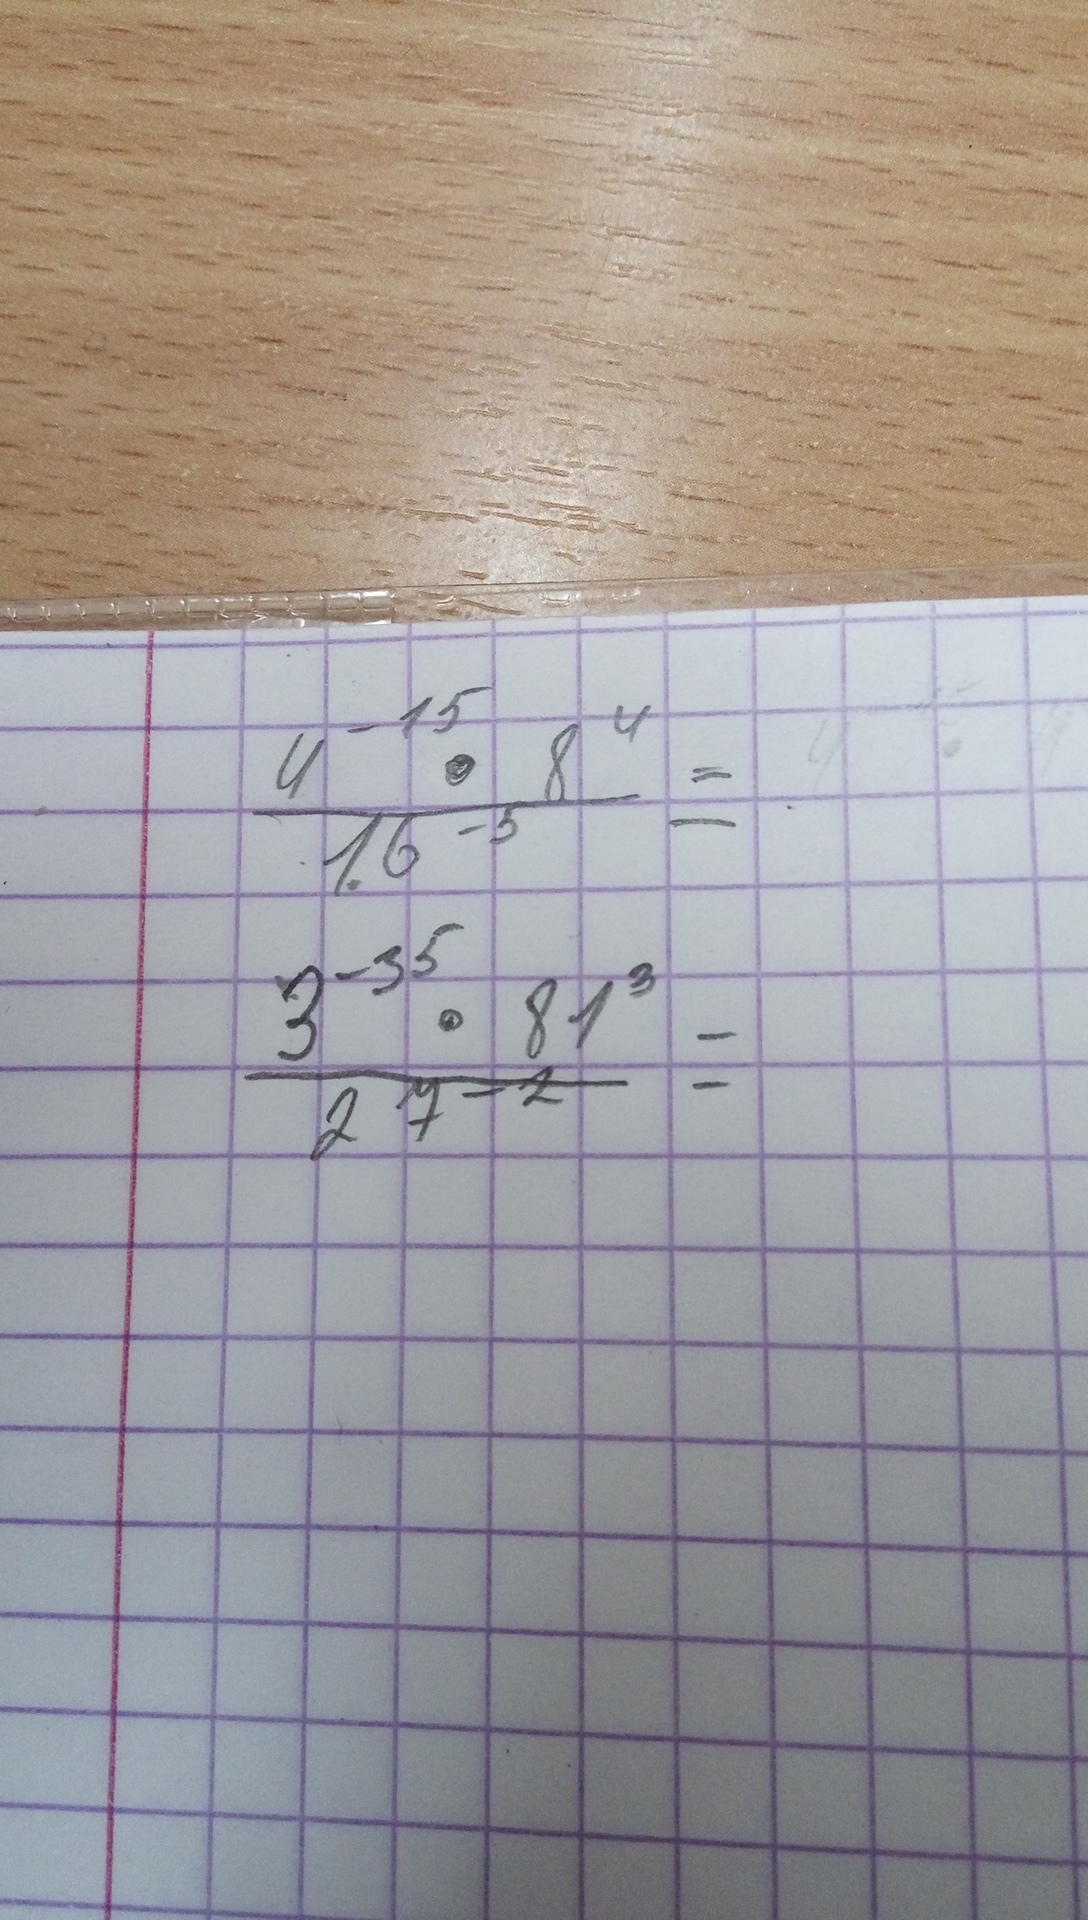 4⁻¹⁵ • 8⁴ =
16⁻⁵
3⁻³⁵ • 81³ =
27⁻²